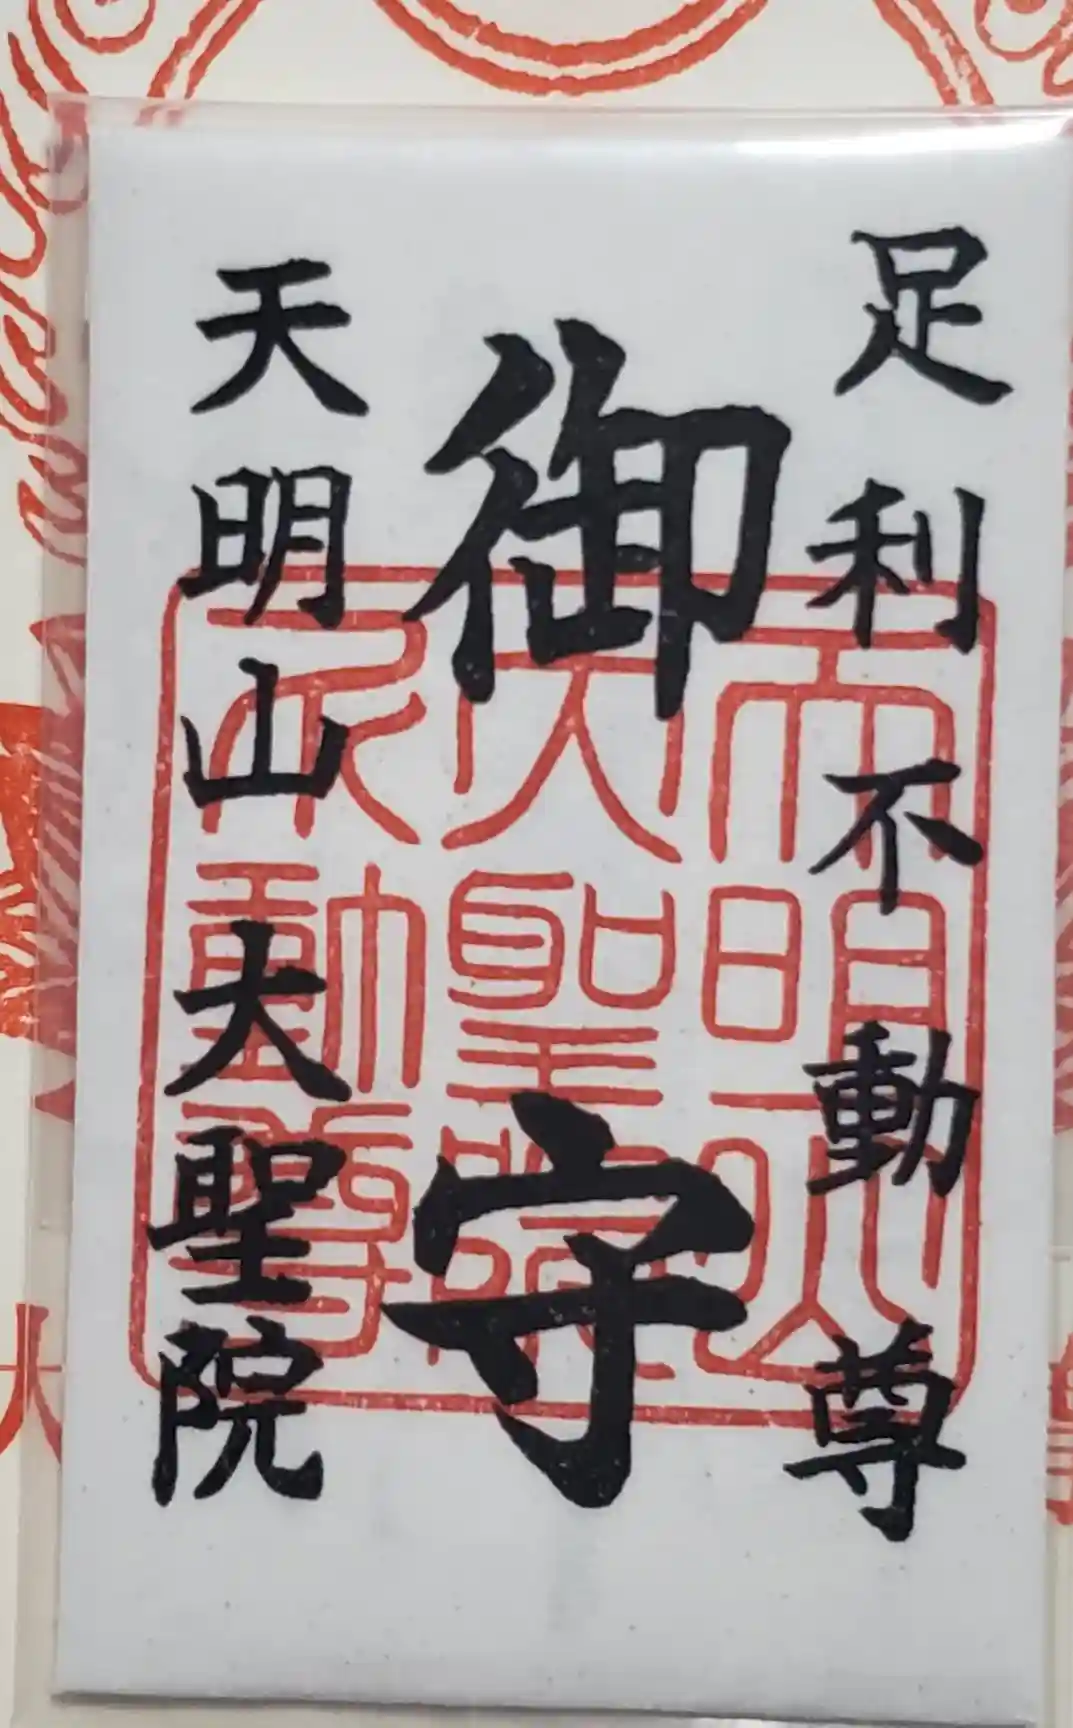 足利不動尊
御守
天明山大聖院
天明山
大聖院
不動尊
大